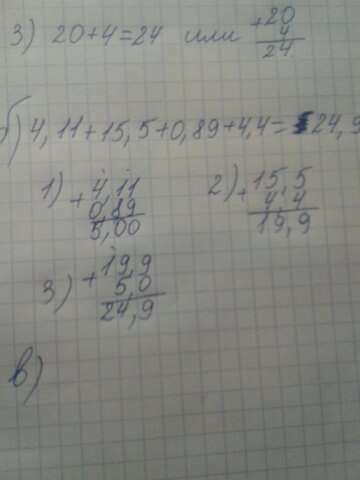 3) 20+4=24 или +20
4
24
б) 4,11+15,5+0,89+4,4=24,9
1) +4,11
0,89
5,00
2) +15,5
4,4
19,9
3) +19,9
5,0
24,9
в)